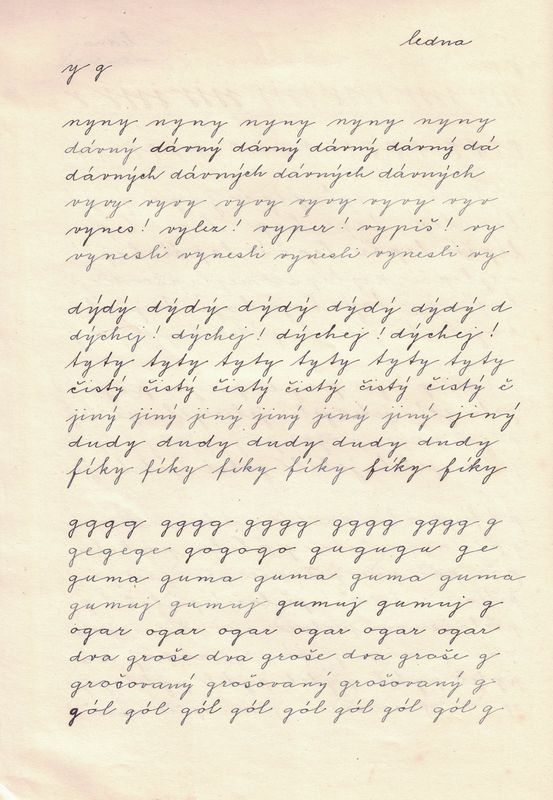 ledna
y g
nyny nyny nyny nyny nyny
dávný dávný dávný dávný dávný dá
dávných dávných dávných dávných
vyvy vyvy vyvy vyvy vyvy vyv
vynes! vylez! vyper! vypiš! vy
vynesli vynesli vynesli vynesli vy
dýdý dýdý dýdý dýdý dýdý d
dýchej! dýchej! dýchej! dýchej!
tyty tyty tyty tyty tyty tyty
čistý čistý čistý čistý čistý čistý č
jiný jiný jiný jiný jiný jiný jiný
dudy dudy dudy dudy dudy
fíky fíky fíky fíky fíky fíky
gggg gggg gggg gggg gggg g
gegege gogogo gugugu ge
guma guma guma guma guma
gumuj gumuj gumuj gumuj g
ogar ogar ogar ogar ogar ogar
dva groše dva groše dva groše g
gročovaný grošovaný grošovaný g
gól gól gól gól gól gól gól gól g